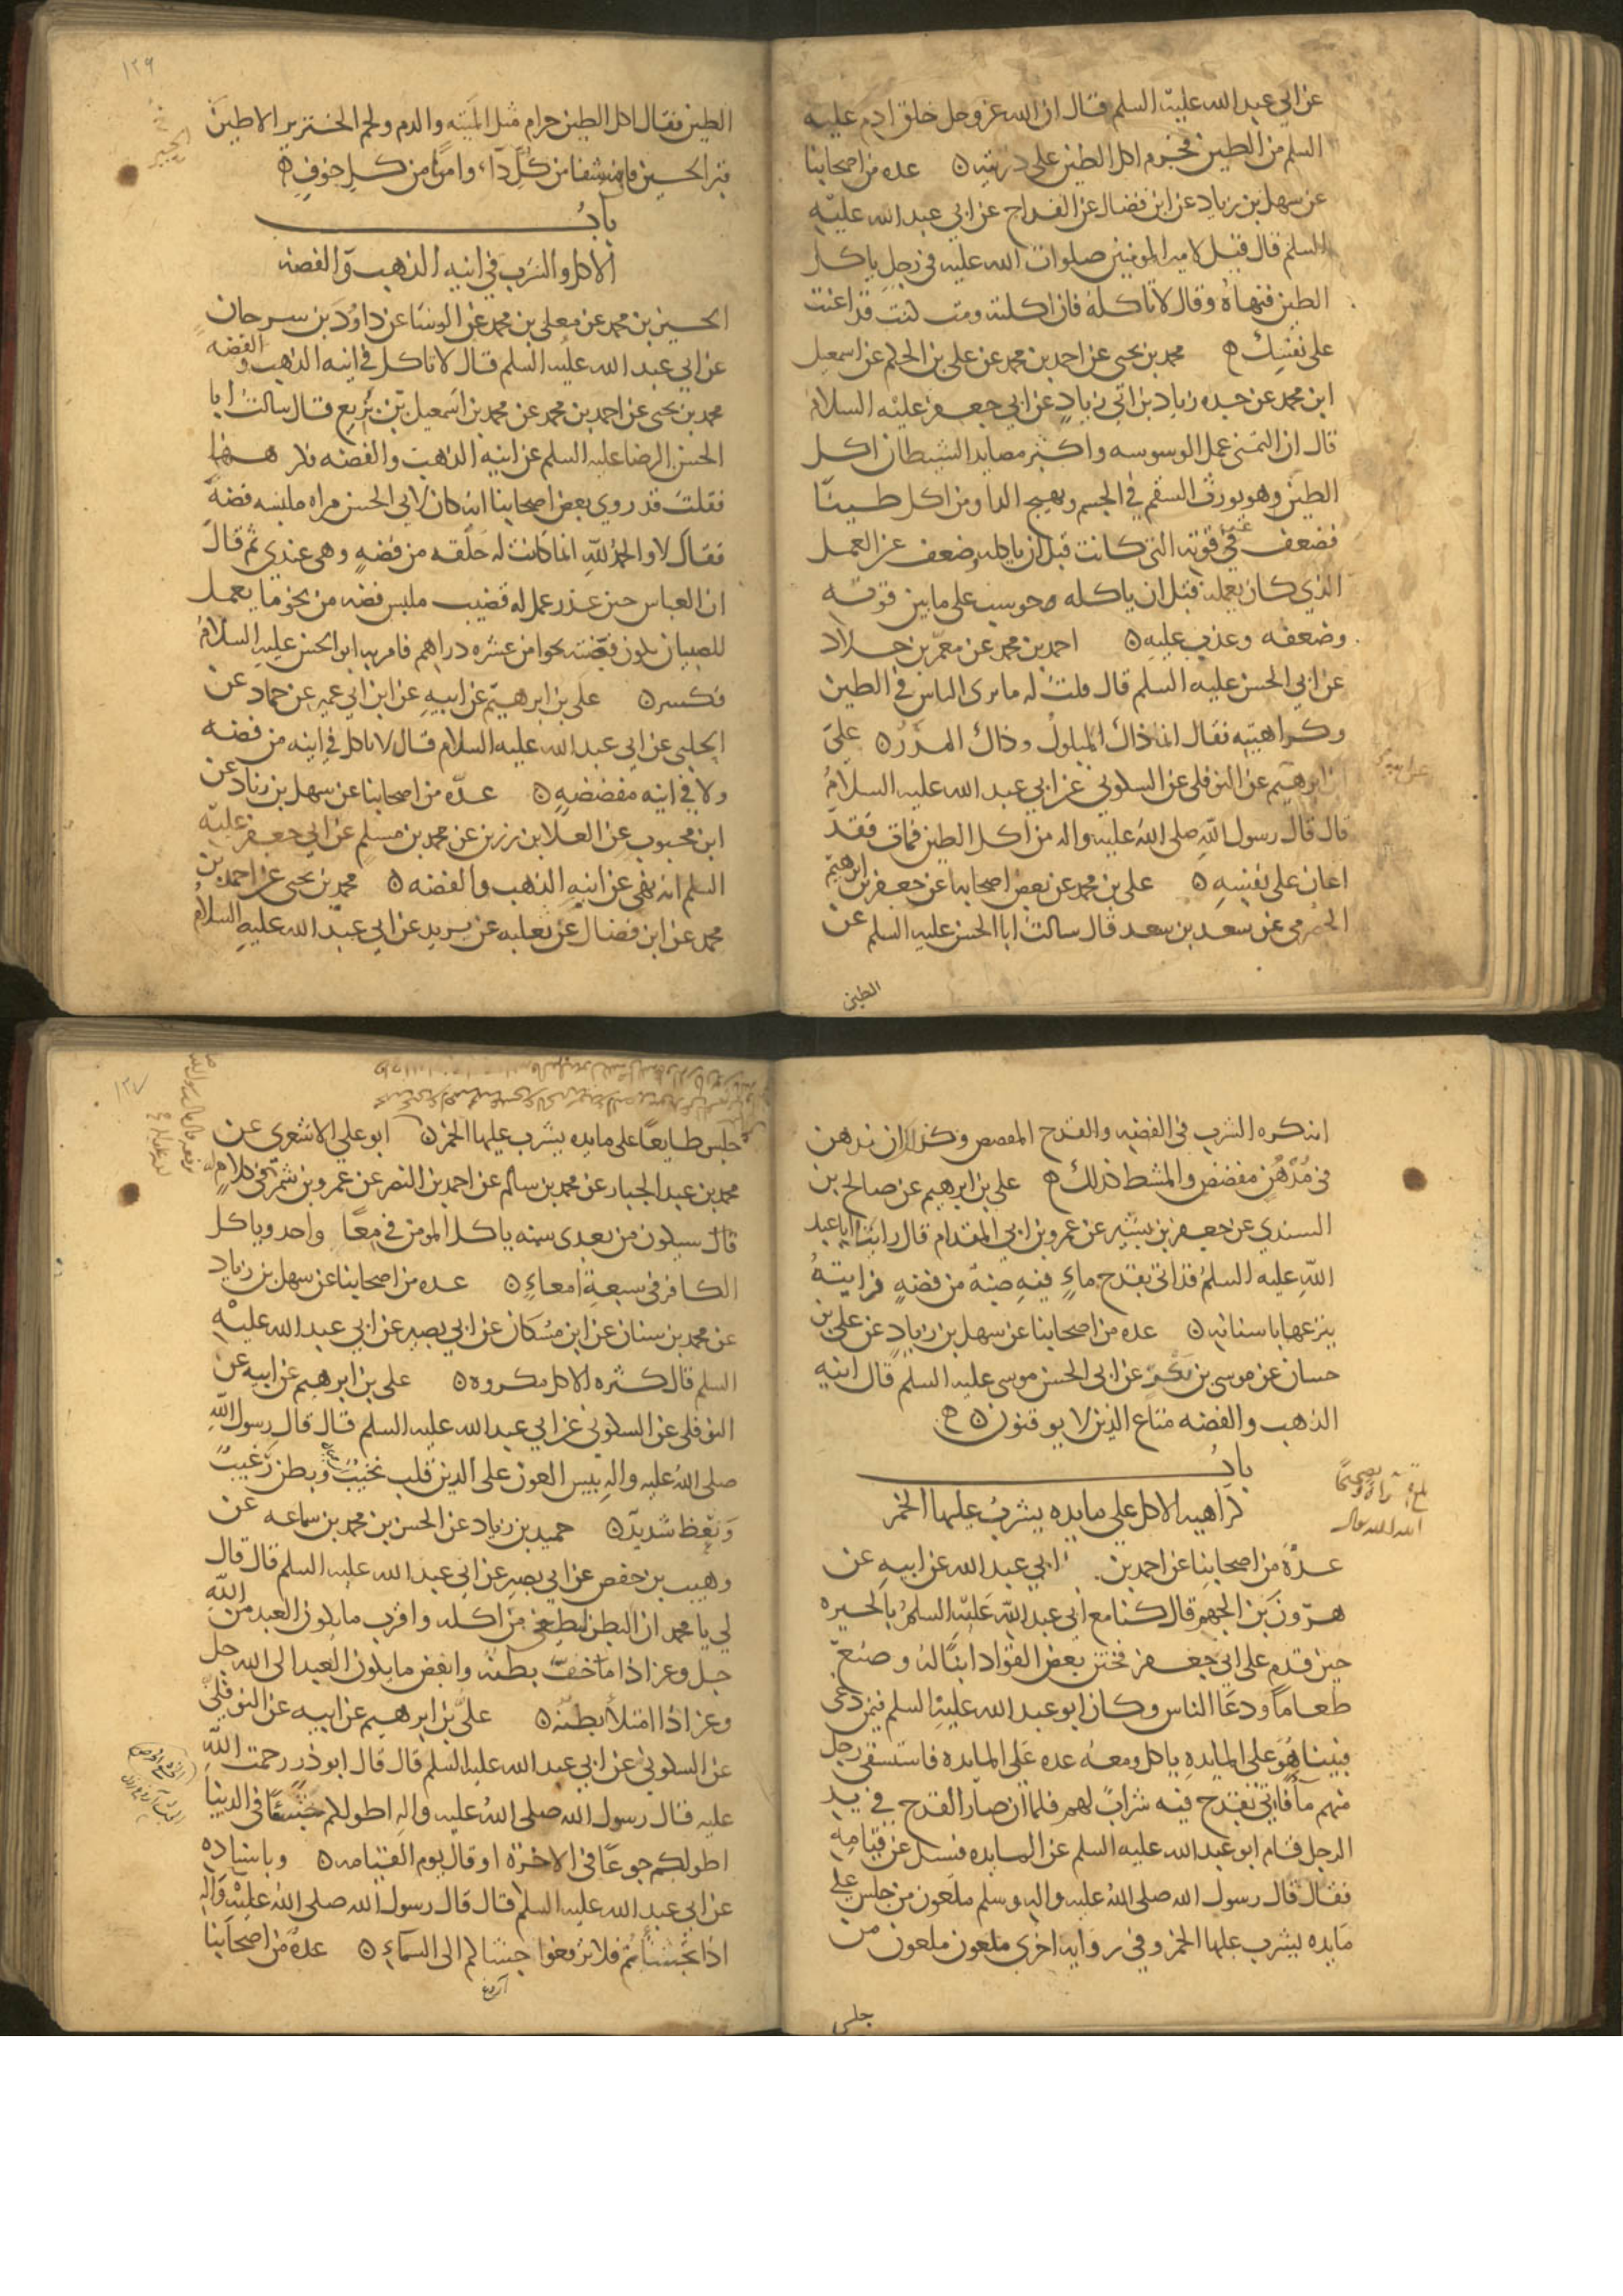 عن ابي عبد الله عليه السلم قال ان الله عز وجل خلق ادم عليه
السلم من الطين فحرم اكل الطين على ذريته عده من اصحابنا
عن سهل بن زياد عن ابن فضال عن القداح عن ابي عبد الله عليه
السلم قال قيل لامير المومنين صلوات الله عليه في رجل ياكل
الطين فنهاه وقال لا تاكله فان اكلته ومت كنت قد اعنت
على نفسك محمد بن يحيى عن احمد بن محمد عن علي بن الحكم عن اسمعيل
ابن محمد عن جده زياد بن ابي زياد عن ابي جعفر عليه السلام
قال ان التمني عمل الوسوسه واكثر مصايد الشيطان اكل
الطين وهو يورث السقم في الجسم ويهيج الدا ومن اكل طينا
فضعف عن قوته التي كانت قبل ان ياكله وضعف عن العمل
الذي كان يعمله قبل ان ياكله حوسب على ما بين قوته
وضعفه وعذب عليه احمد بن محمد عن معمر بن خلاد
عن ابي الحسن عليه السلم قال قلت له ما يرى الناس في الطين
وكراهيته فقال انما ذاك المبلول وذاك المدر علي
بن ابرهيم عن النوفلي عن السكوني عن ابي عبد الله عليه السلام
قال قال رسول الله صلى الله عليه واله من اكل الطين فمات فقد
اعان على نفسه علي بن محمد عن بعض اصحابنا عن جعفر بن ابرهيم
الحضرمي عن سعد بن سعد قال سالت ابا الحسن عليه السلم عن
الطين
١٢٦
الطين فقال اكل الطين حرام مثل الميته والدم ولحم الخنزير الا طين
قبر الحسين فان فيه شفا من كل داء وامنا من كل خوف
باب
الاكل والشرب في انيه الذهب والفضه
الحسين بن محمد عن معلى بن محمد عن الوشا عن داود بن سرحان
عن ابي عبد الله عليه السلم قال لا تاكل في انيه الذهب والفضه
محمد بن يحيى عن احمد بن محمد عن محمد بن اسمعيل بن بزيع قال سالت ابا
الحسن الرضا عليه السلم عن انيه الذهب والفضه فكرههما
فقلت قد روي بعض اصحابنا انه كان لابي الحسن مراه ملبسه فضه
فقال لا والحمد لله انما كانت له حلقه من فضه وهي عندي ثم قال
ان العباس حين عذر عمل له قضيب ملبس فضه من نحو ما يعمل
للصبيان تكون فضته نحوا من عشره دراهم فامر به ابو الحسن عليه السلام
فكسر علي بن ابرهيم عن ابيه عن ابن ابي عمير عن حماد عن
الحلبي عن ابي عبد الله عليه السلام قال لا تاكل في انيه من فضه
ولا في انيه مفضضه عده من اصحابنا عن سهل بن زياد عن
ابن محبوب عن العلا بن رزين عن محمد بن مسلم عن ابي جعفر عليه
السلم انه نهى عن انيه الذهب والفضه محمد بن يحيى عن احمد بن
محمد عن ابن فضال عن ثعلبه عن بريد عن ابي عبد الله عليه السلام
انه كره الشرب في الفضه والقدح المفضض وكذلك ان يدهن
في مدهن مفضض والمشط كذلك علي بن ابرهيم عن صالح بن
السندي عن جعفر بن بشير عن عمرو بن ابي المقدام قال رايت ابا عبد
الله عليه السلم قد اتي بقدح ماء فيه ضبه من فضه فرايته
ينزعها باسنانه عده من اصحابنا عن سهل بن زياد عن علي بن
حسان عن موسى بن بكر عن ابي الحسن موسى عليه السلم قال انيه
الذهب والفضه متاع الذين لا يوقنون
باب
كراهيه الاكل على مايده يشرب عليها الخمر
عده من اصحابنا عن احمد بن ابي عبد الله عن ابيه عن
هرون بن الجهم قال كنا مع ابي عبد الله عليه السلم بالحيره
حين قدم على ابي جعفر فختن بعض القواد ابنا له وصنع
طعاما ودعا الناس وكان ابو عبد الله عليه السلم فيمن دعي
فبينا هو على المايده ياكل ومعه عده على المايده فاستسقى رجل
منهم ما فاتي بقدح فيه شراب لهم فلما ان صار القدح في يد
الرجل قام ابو عبد الله عليه السلم عن المايده فسئل عن قيامه
فقال قال رسول الله صلى الله عليه واله وسلم ملعون من جلس على
مايده يشرب عليها الخمر وفي روايه اخرى ملعون ملعون من
جلس
١٢٧
جلس طايعا على مايده يشرب عليها الخمر ابو علي الاشعري عن
محمد بن عبد الجبار عن محمد بن سالم عن احمد بن النضر عن عمرو بن شمر في كلام
قال سيكون من بعدي سنه ياكل المومن في معا واحد وياكل
الكافر في سبعة امعاء عده من اصحابنا عن سهل بن زياد
عن محمد بن سنان عن ابن مسكان عن ابي بصير عن ابي عبد الله عليه
السلم قال كثره الاكل مكروه علي بن ابرهيم عن ابيه عن
النوفلي عن السكوني عن ابي عبد الله عليه السلم قال قال رسول الله
صلى الله عليه واله بيس العون على الدين قلب نخيب وبطن رغيب
ونعظ شديد حميد بن زياد عن الحسن بن محمد بن سماعه عن
وهيب بن حفص عن ابي بصير عن ابي عبد الله عليه السلم قال قال
لي يا محمد ان البطن ليطغى من اكله واقرب ما يكون العبد من الله
جل وعز اذا ما خف بطنه وابغض ما يكون العبد الى الله جل
وعز اذا امتلأ بطنه علي بن ابرهيم عن ابيه عن النوفلي
عن السكوني عن ابي عبد الله عليه السلم قال قال ابو ذر رحمت الله
عليه قال رسول الله صلى الله عليه واله اطولكم جشئا في الدنيا
اطولكم جوعا في الاخرة او قال يوم القيامه وباسناده
عن ابي عبد الله عليه السلم قال قال رسول الله صلى الله عليه واله
اذا تجشأتم فلا ترفعوا جشاكم الى السماء عده من اصحابنا
آروغ